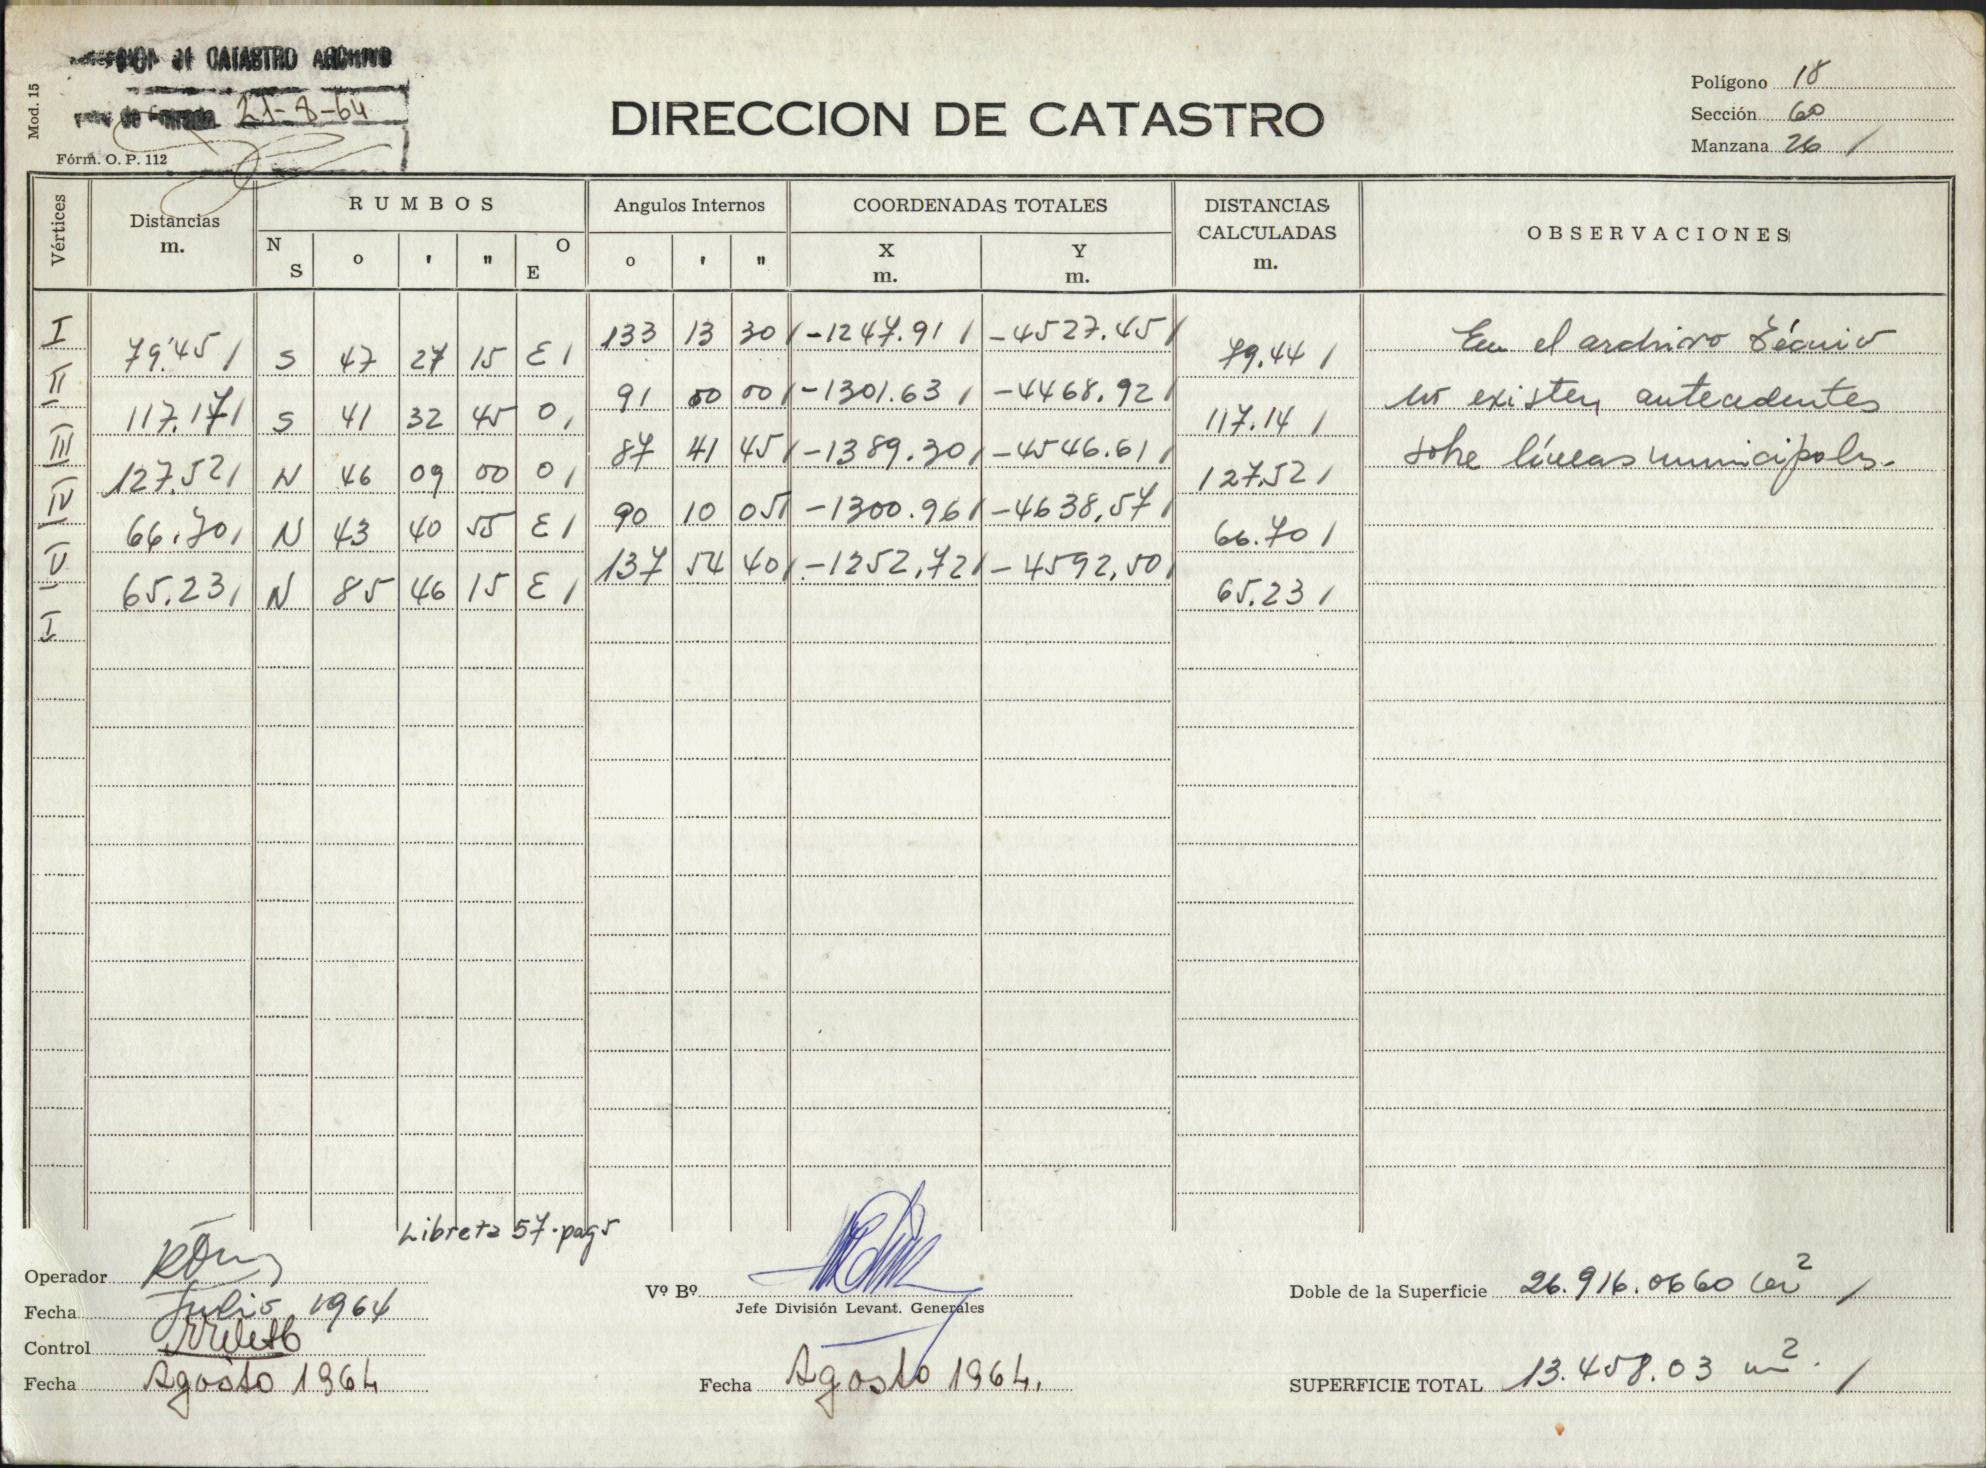 de CATASTRO ARCHIVO
de Entrada 21-8-64
Mod. 15
Fórm. O. P. 112
DIRECCION DE CATASTRO
Polígono 18
Sección 60
Manzana 26 /
Vértices
Distancias m.
RUMBOS
N S o ' " O E
Angulos Internos
o ' "
COORDENADAS TOTALES
X m. Y m.
DISTANCIAS CALCULADAS m.
OBSERVACIONES
I 133 13 30 / -1247.91 / -4527.45 /
79.45 / S 47 27 15 E / 79.44 /
II 91 00 00 / -1301.63 / -4468.92 /
117.17 / S 41 32 45 O / 117.14 /
III 87 41 45 / -1389.30 / -4546.61 /
127.52 / N 46 09 00 O / 127.52 /
IV 90 10 05 / -1300.96 / -4638,57 /
66.70 / N 43 40 55 E / 66.70 /
V 137 54 40 / -1252,72 / -4592,50 /
65.23 / N 85 46 15 E / 65.23 /
I
En el archivo Técnico
no existen antecedentes
sobre líneas municipales.
Libreta 57-pag 5
Operador
Fecha Julio 1964
Control
Fecha Agosto 1964
Vº Bº
Jefe División Levant. Generales
Fecha Agosto 1964.
Doble de la Superficie 26.916.0660 m² /
SUPERFICIE TOTAL 13.458.03 m². /